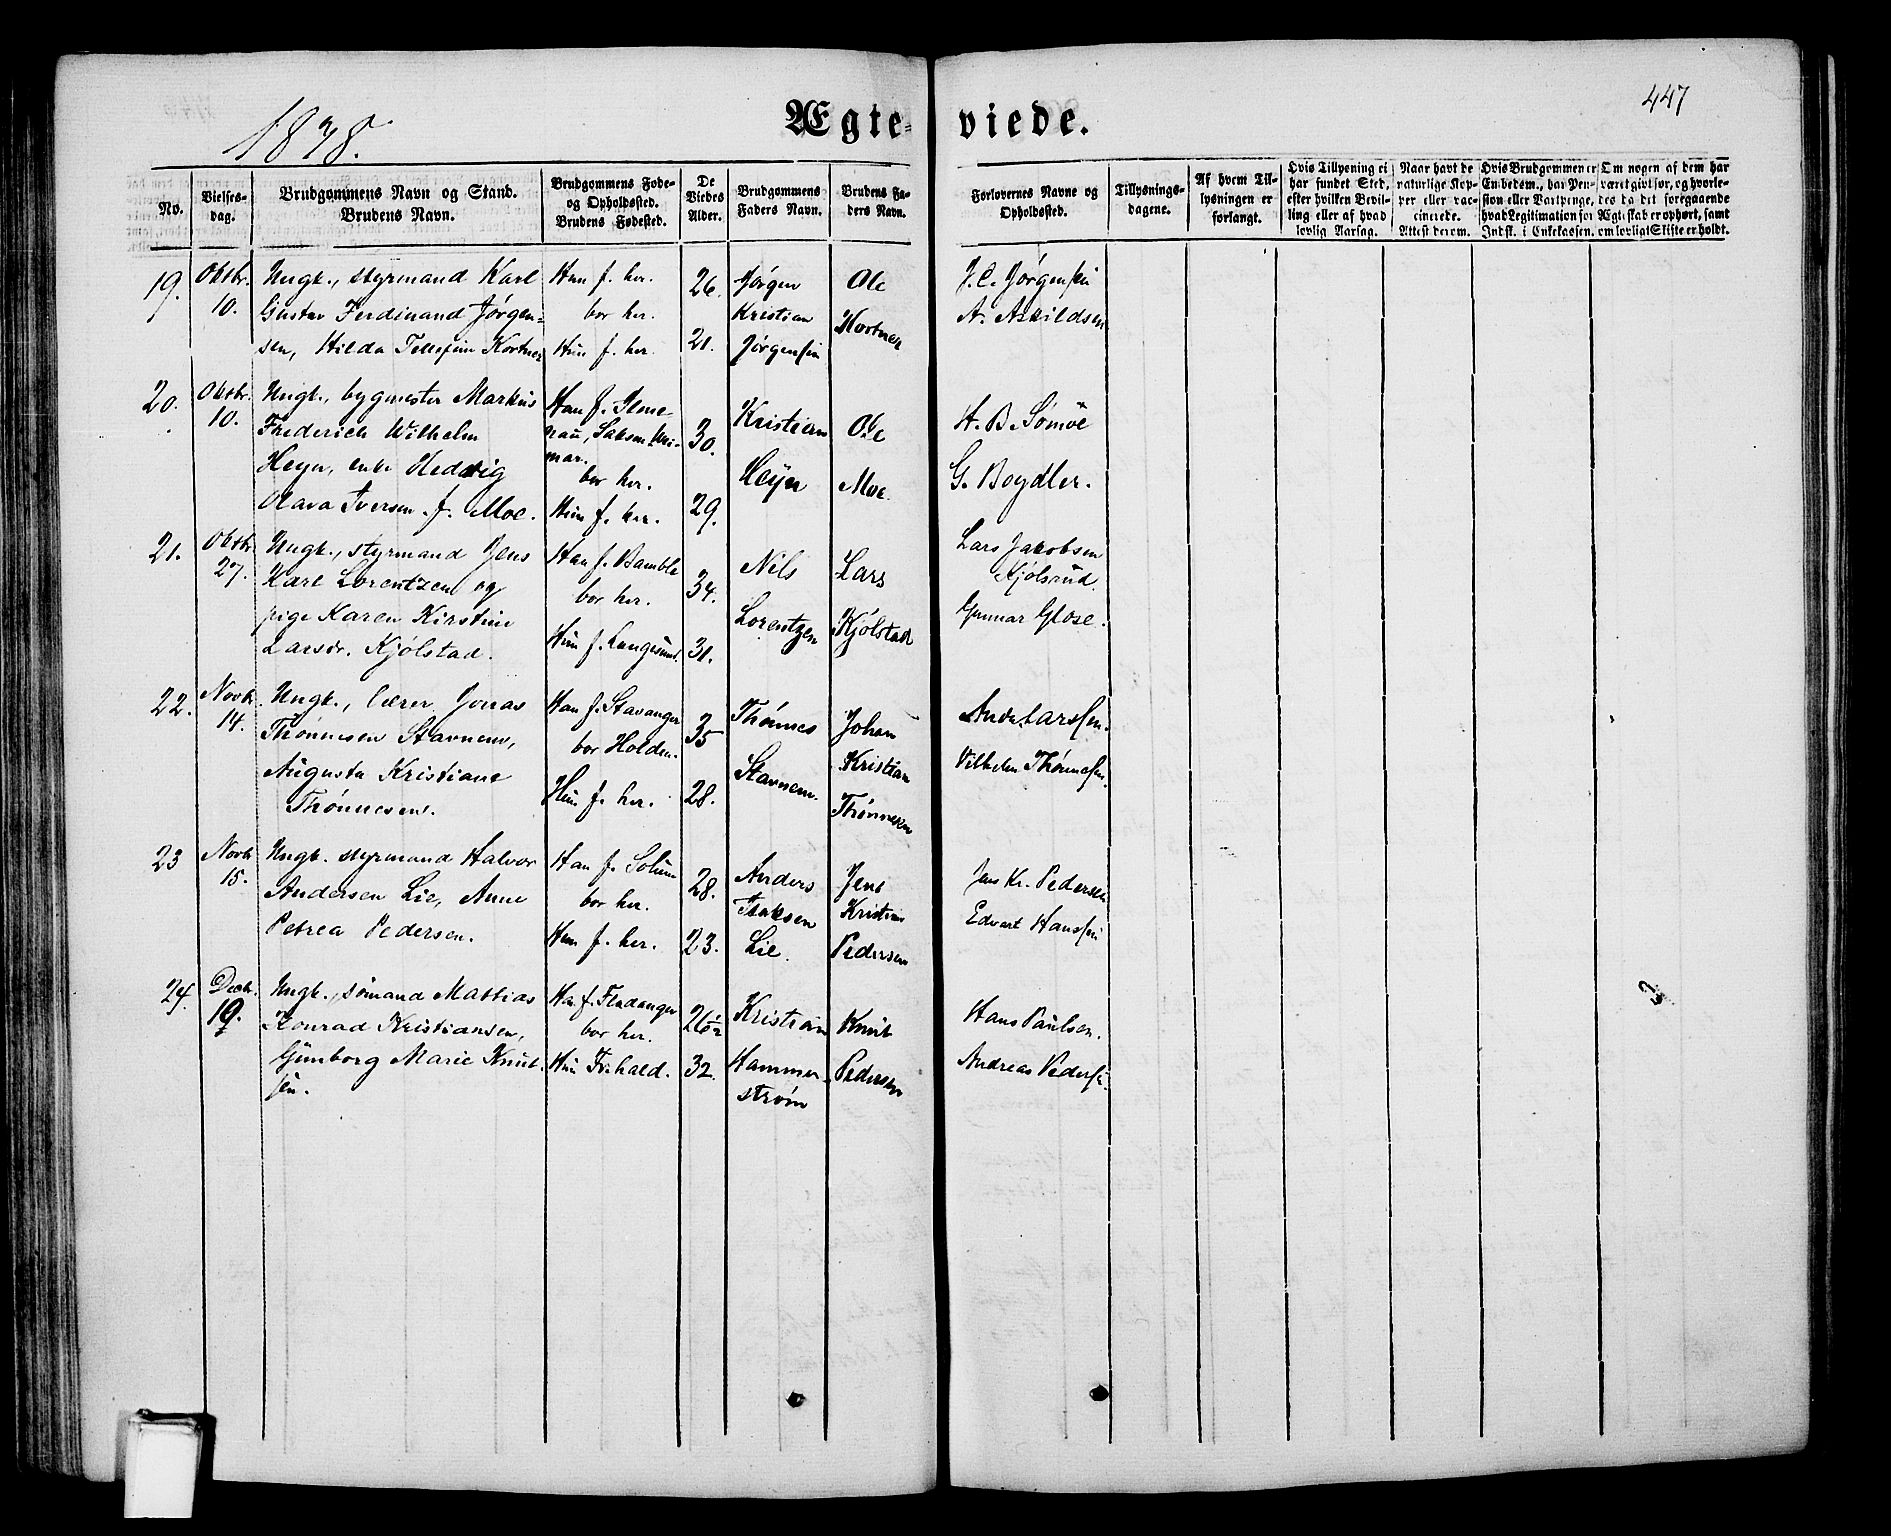 1878.
Ægte- viede.
447
No.
Vielses-
dag.
Brudgommens Navn og Stand.
Brudens Navn.
Brudgommens Føde-
og Opholdssted.
Brudens Fødested.
De
Viedes
Alder.
Brudgommens
Faders Navn.
Brudens Fa-
ders Navn.
Forlovernes Navne og
Opholdssted.
Tillysnings-
dagene.
Af hvem Til-
lysningen er
forlangt.
Hvis Tillysning ei
har fundet Sted,
efter hvilken Bevil-
ling eller af hvad
lovlig Aarsag.
Naar havt de
naturlige Kop-
per eller vac-
cinerede.
Attest derom.
Hvis Brudgommen er
Embedsm., har Pen-
sion eller Vartpenge,
hvad Legitimation for
Indsk. i Enkekassen.
Om nogen af dem har
været gift før, og hvorle-
des da det foregaaende
Ægteskab er ophørt, samt
om lovligt Skifte er holdt.
19.
Oktbr.
10.
Ungk., styrmand Karl
Gustav Ferdinand Jørgen-
sen, Hilda Tellefine Kortner
Han f. her.
bor her.
Hun f. her.
26.
21.
Jørgen
Kristian
Jørgensen
Ole
Kortner
J. C. Jørgensen
A. Askildsen
20.
Oktbr.
10.
Ungk., bygmester Markus
Frederich Wilhelm
Heyn, enke Hedvig
Olava Iversen f. Moe.
Han f. Ilme-
nau, Saksen Wei-
mar.
bor her.
Hun f. her.
30.
29.
Kristian
Heyn
Ole
Moe
H. B. Sømoe
G. Boydler.
21.
Oktbr
27.
Ungk., styrmand Jens
Karl Lorentzen og
pige Karen Kirstine
Larsdr. Kjølstad.
Han f. Bamble
bor her.
Hun f. Langesund.
34.
31.
Nils
Lorentzen
Lars
Kjølstad
Lars Jakobsen
Kjølsrud
Gunnar Glose.
22.
Novb.
14.
Ungk., lærer Jonas
Thønnesen Stavnem,
Augusta Kristiane
Thønnesen.
Han f. Stavanger
bor Holden.
Hun f. her.
35
28.
Thønnes
Stavnem.
Johan
Kristian
Thønnesen
Larssen.
Vilhelm Thønnesen.
23
Novb.
15.
Ungk. styrmand Halvor
Andersen Lie, Anne
Petrea Pedersen.
Han f. Solum
bor her.
Hun f. her.
28.
23.
Anders
Isaksen
Lie.
Jens
Kristian
Pedersen
Jens Kr. Pedersen
Edvart Hanssen
24.
Decb.
19.
Ungk., sømand Mattias
Konrad Kristiansen,
Gunborg Marie Knut-
sen.
Han f. Fladanger
bor her.
Hun Frhald.
26½
32.
Kristian
Hammer-
strøm
Knut
Pedersen
Hans Paulsen.
Andreas Pedersen